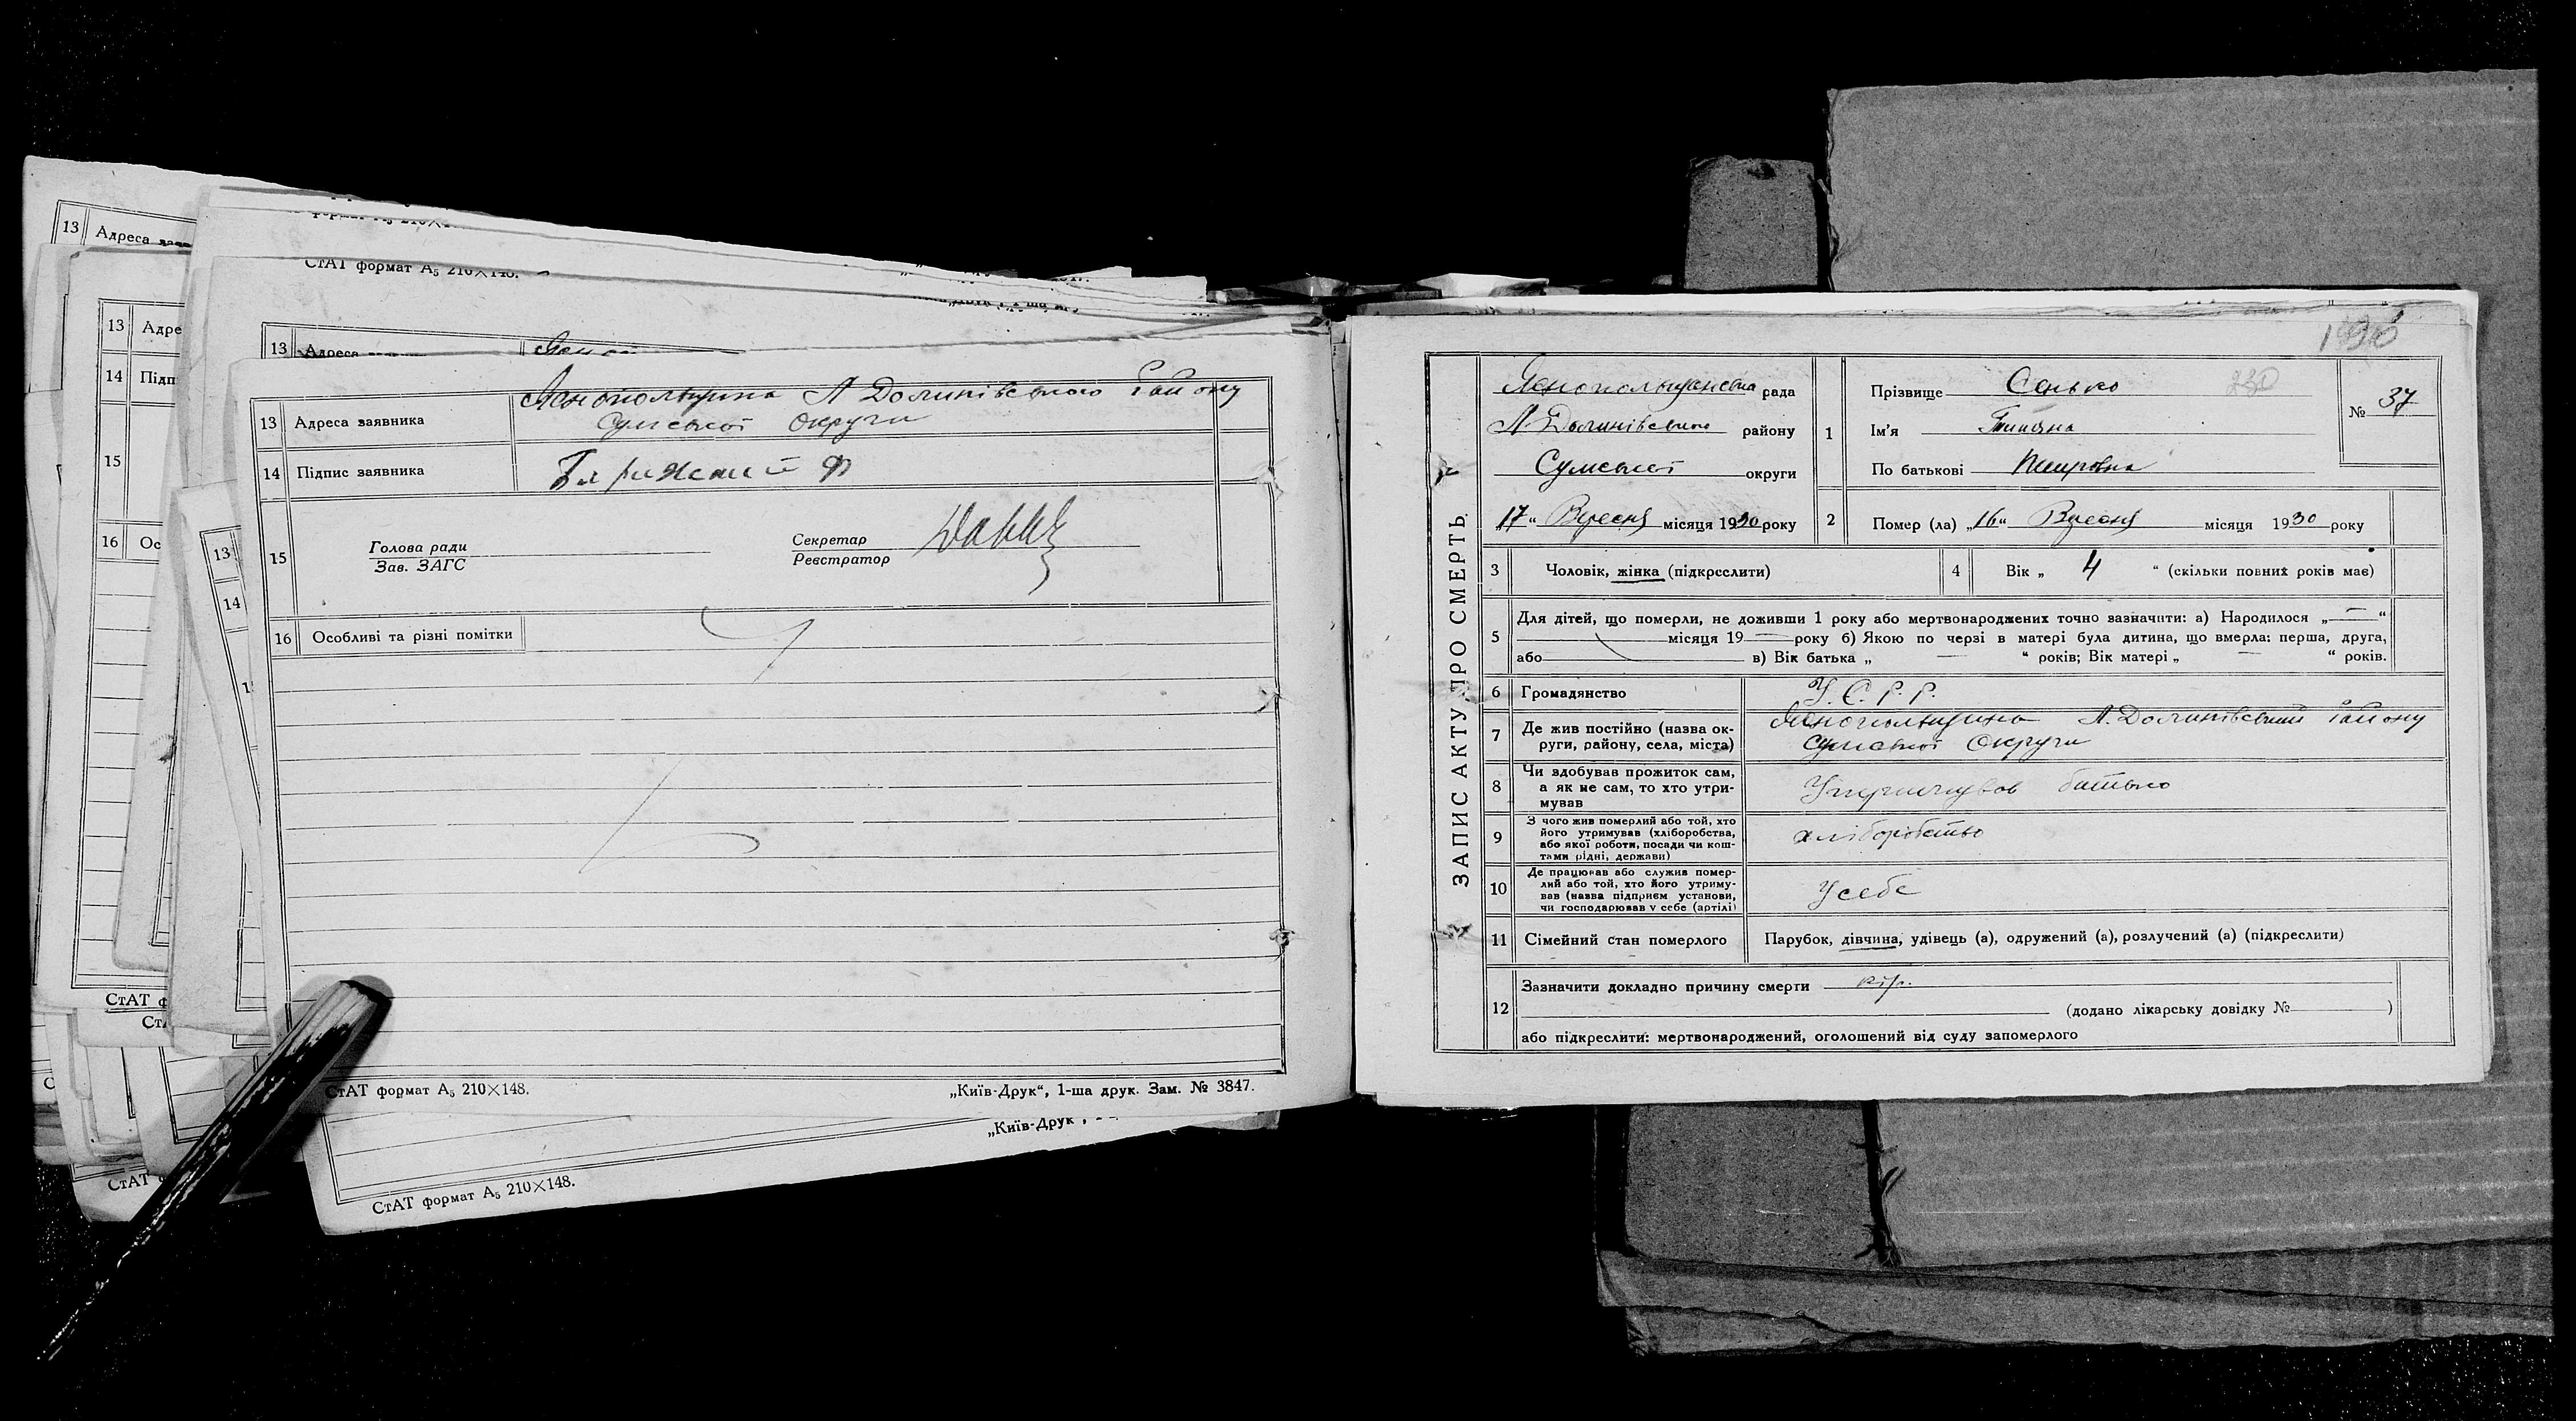 13 Адреса
13 Адре
14 Підп
15
16 Ос
13
14
СтАТ формат А₅ 210×148.
13 Адреса
13 Адреса заявника Яснопольщина Л Долинівського Району
Сумської Округи
14 Підпис заявника
15 Голова ради
Зав. ЗАГС
Секретар
Реєстратор
16 Особливі та різні помітки
СтАТ формат А₅ 210×148.
„Київ-Друк“, 1-ша друк. Зам. № 3847.
„Київ-Друк
СтАТ формат А₅ 210×148.
ЗАПИС АКТУ ПРО СМЕРТЬ.
Яснопольщанська рада
Л-Долинівського району
Сумської округи
„17“ Вересня місяця 1930 року
1 Прізвище Сенько
Ім'я Тетяна
По батькові Петровна
№ 37
2 Помер (ла) „16“ Вересня місяця 1930 року
3 Чоловік, жінка (підкреслити)
4 Вік „ 4 “ (скільки повних років має)
5 Для дітей, що померли, не доживши 1 року або мертвонароджених точно зазначити: а) Народилося „—“
місяця 19 — року б) Якою по черзі в матері була дитина, що вмерла: перша, друга,
або в) Вік батька „ — “ років; Вік матері „ — “ років.
6 Громадянство У. С. Р. Р.
7 Де жив постійно (назва ок-
руги, району, села, міста) Яснопольщина Л. Долинівський Району
Сумської Округи
8 Чи здобував прожиток сам,
а як не сам, то хто утри-
мував Утримував батько
9 З чого жив померлий або той, хто
його утримував (хліборобства,
або якої роботи, посади чи кош-
тами рідні, держави) хліборобство
10 Де працював або служив помер-
лий або той, хто його утриму-
вав (назва підприєм установи,
чи господарював у себе (артілі) У себе
11 Сімейний стан померлого Парубок, дівчина, удівець (а), одружений (а), розлучений (а) (підкреслити)
12 Зазначити докладно причину смерти кір.
(додано лікарську довідку № )
або підкреслити: мертвонароджений, оголошений від суду запомерлого